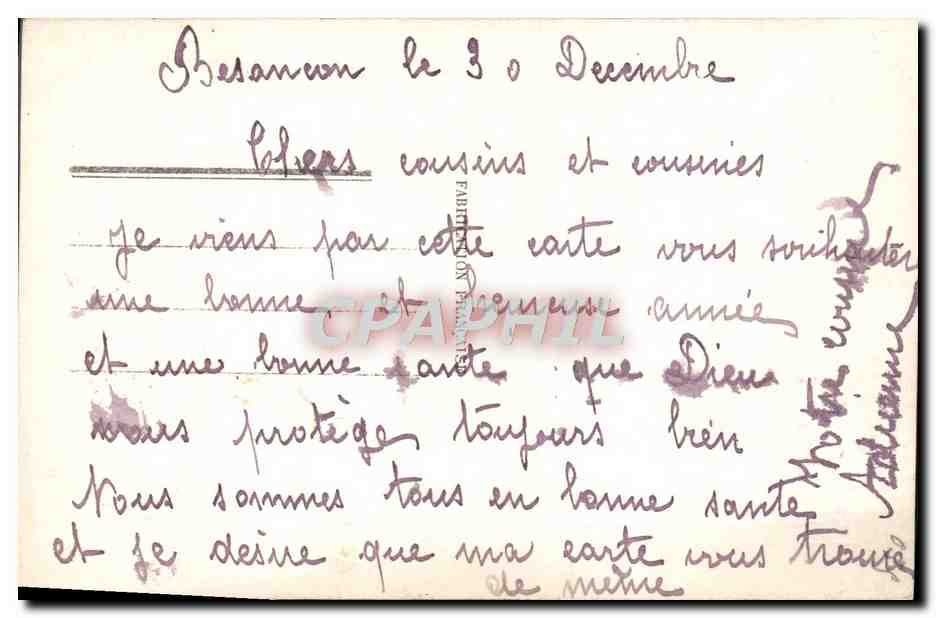 Besancon le 30 Decembre
Chers cousins et cousines
Je viens par cette carte vous souhaiter
une bonne et heureuse année
et une bonne sante que Dieu
vous protège toujours bien
Nous sommes tous en bonne sante
et je desire que ma carte vous trouve
de même
Votre cousine
FABRICATION FRANÇAISE
CPAPHIL